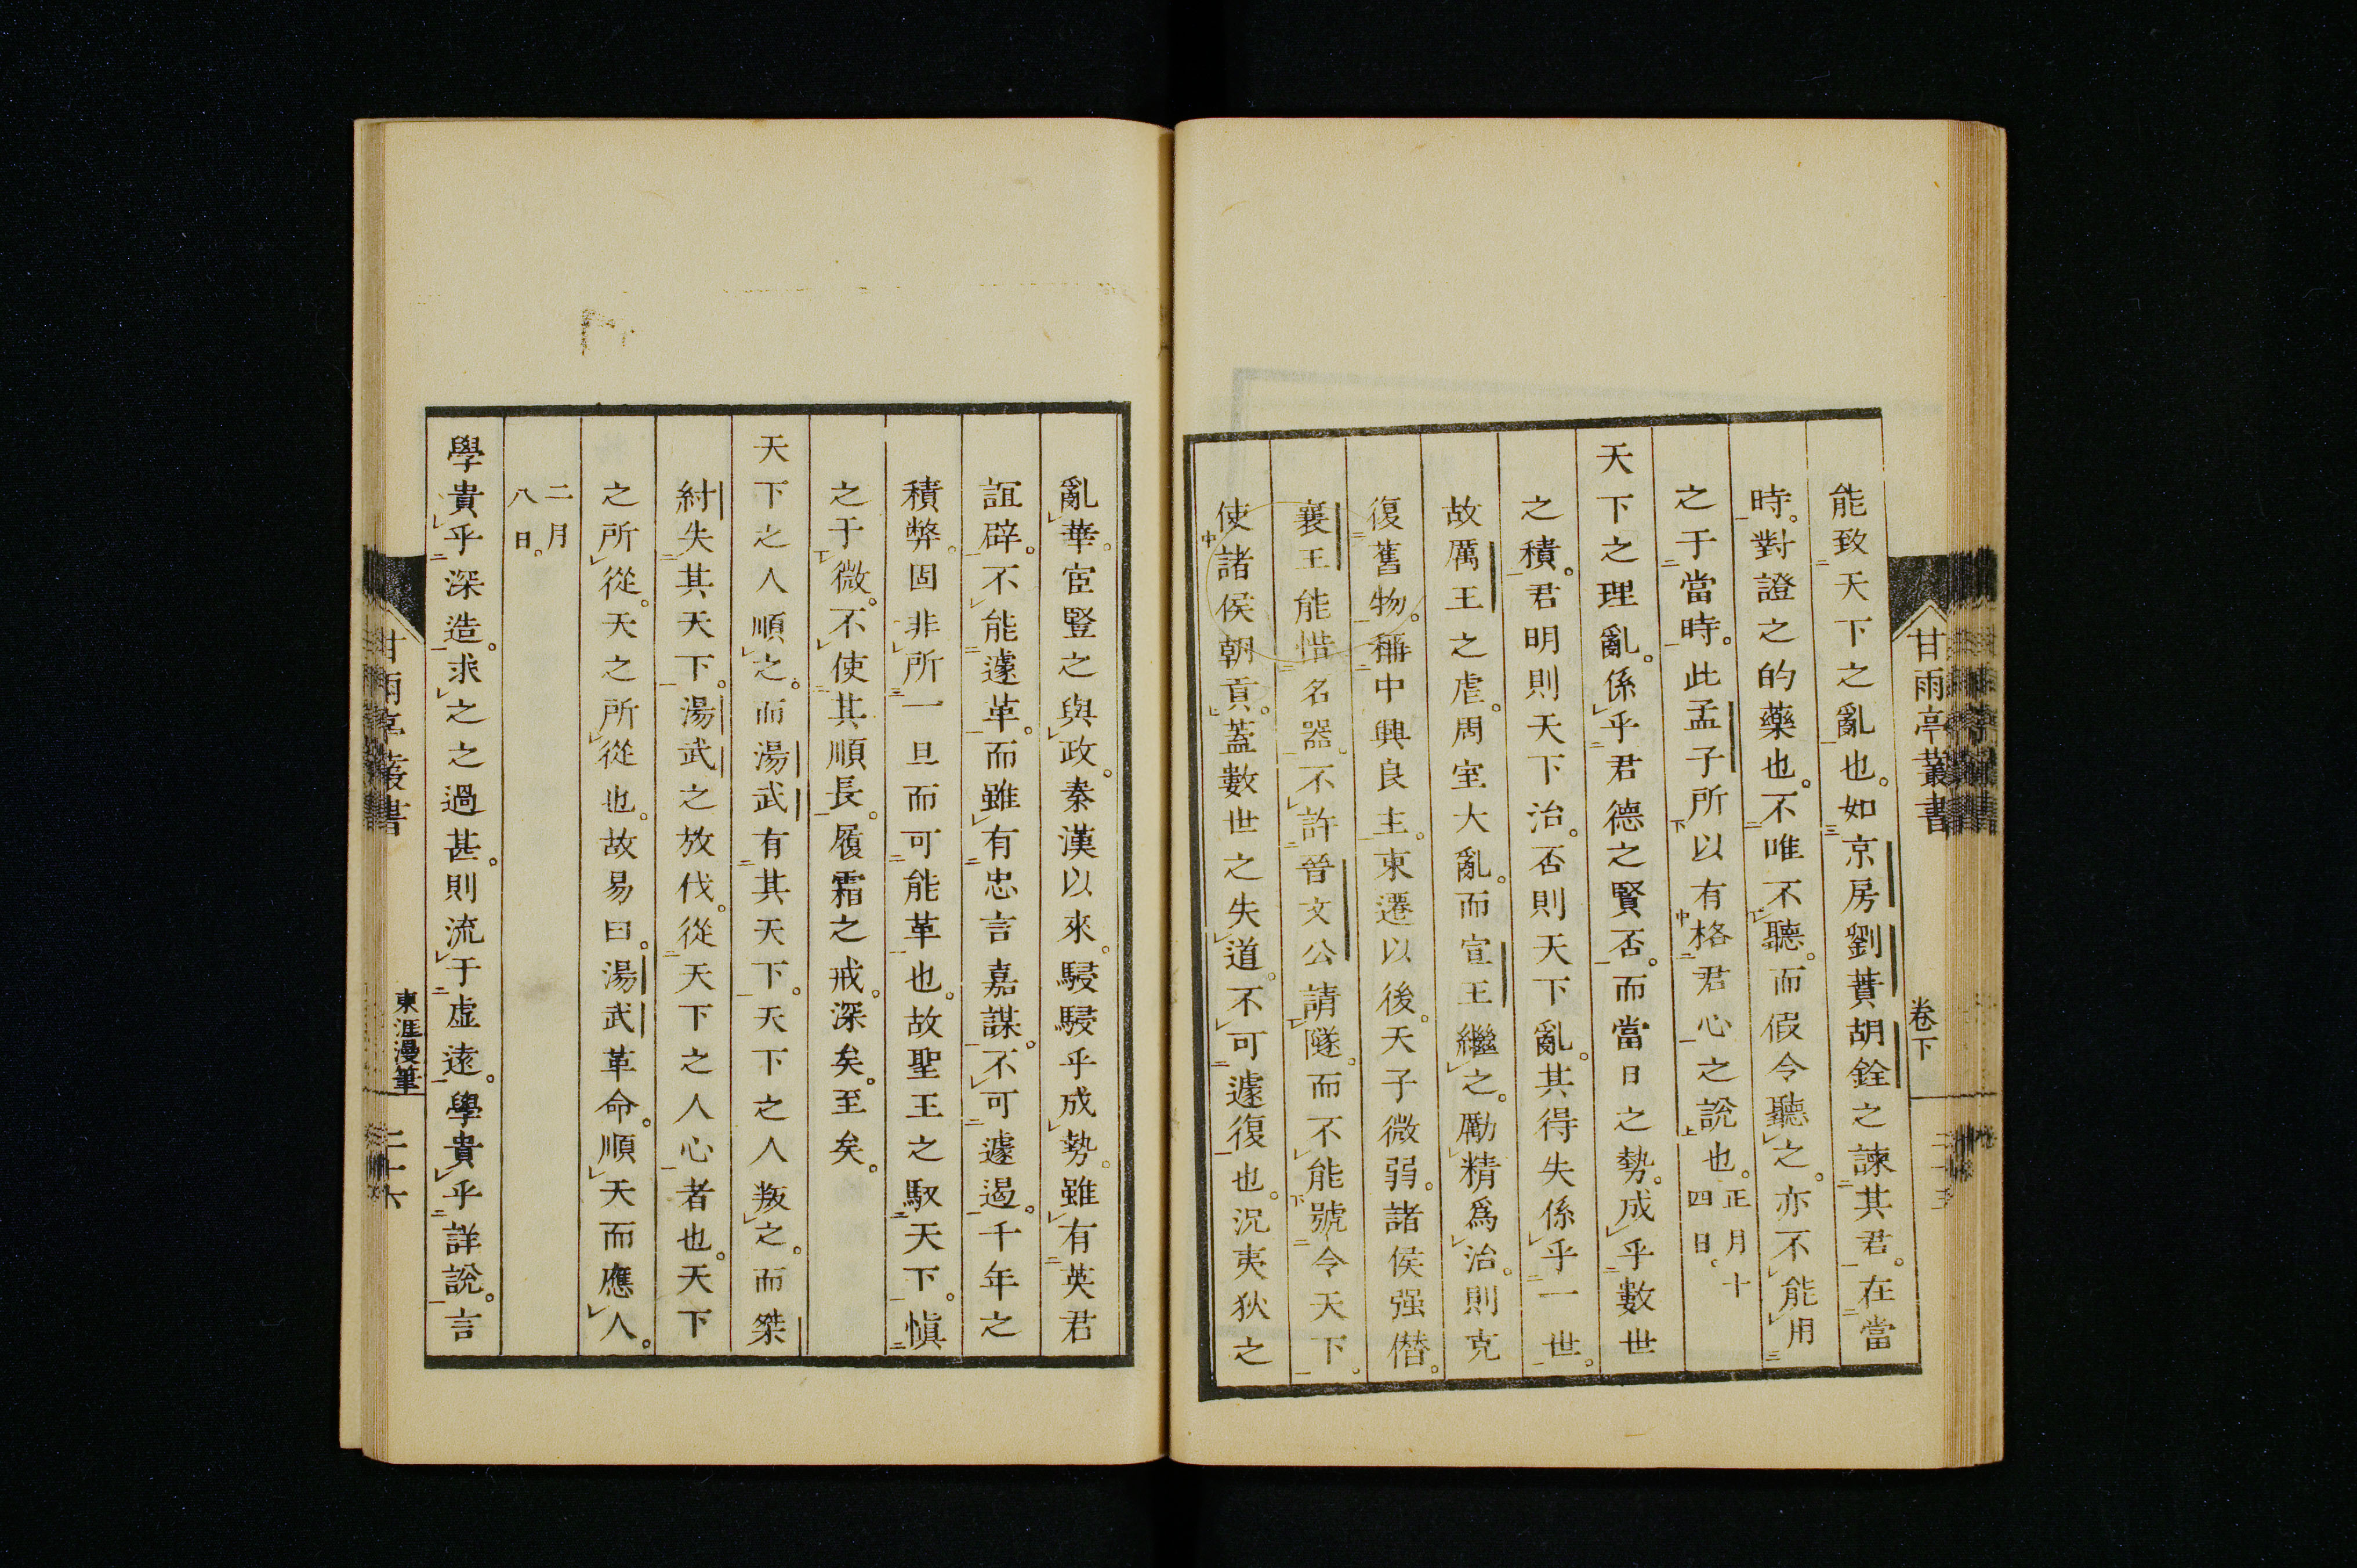 甘雨亭叢書 卷下
能致天下之亂也。如京房劉蕡胡銓之諫其君。在當
時。對證之的藥也。不唯不聽。而假令聽之。亦不能用
之于當時。此孟子所以有格君心之說也。正月十
四日。
天下之理亂。係乎君德之賢否。而當日之勢。成乎數世
之積。君明則天下治。否則天下亂。其得失係乎一世。
故厲王之虐。周室大亂。而宣王繼之。勵精爲治。則克
復舊物。稱中興良主。東遷以後。天子微弱。諸侯强僭。
襄王能惜名器。不許晉文公請隧。而不能號令天下。
使諸侯朝貢。蓋數世之失道。不可遽復也。況夷狄之
亂華。宦豎之與政。秦漢以來。駸駸乎成勢。雖有英君
誼辟。不能遽革。而雖有忠言嘉謀。不可遽遏。千年之
積弊。固非所一旦而可能革也。故聖王之馭天下。愼
之于微。不使其順長。履霜之戒。深矣。至矣。
天下之人順之。而湯武有其天下。天下之人叛之。而桀
紂失其天下。湯武之放伐。從天下之人心者也。天下
之所從。天之所從也。故易曰。湯武革命。順天而應人。
二月
八日。
學貴乎深造。求之之過甚。則流于虛遠。學貴乎詳說。言
甘雨亭叢書
東涯漫筆
二十六